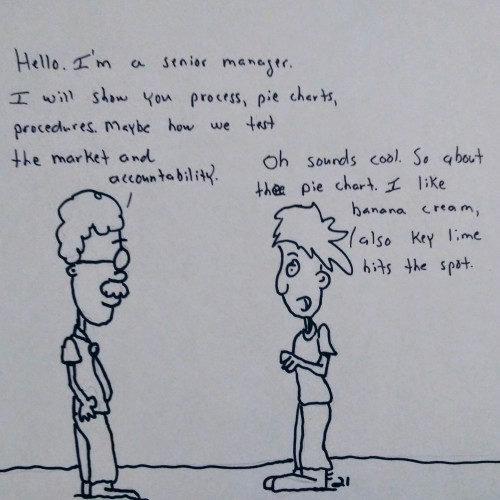 Hello. I'm a senior manager.
I will show you process, pie charts,
procedures. Maybe how we test
the market and
accountability.
Oh sounds cool. So about
thee pie chart. I like
banana cream,
also key lime
hits the spot.
21